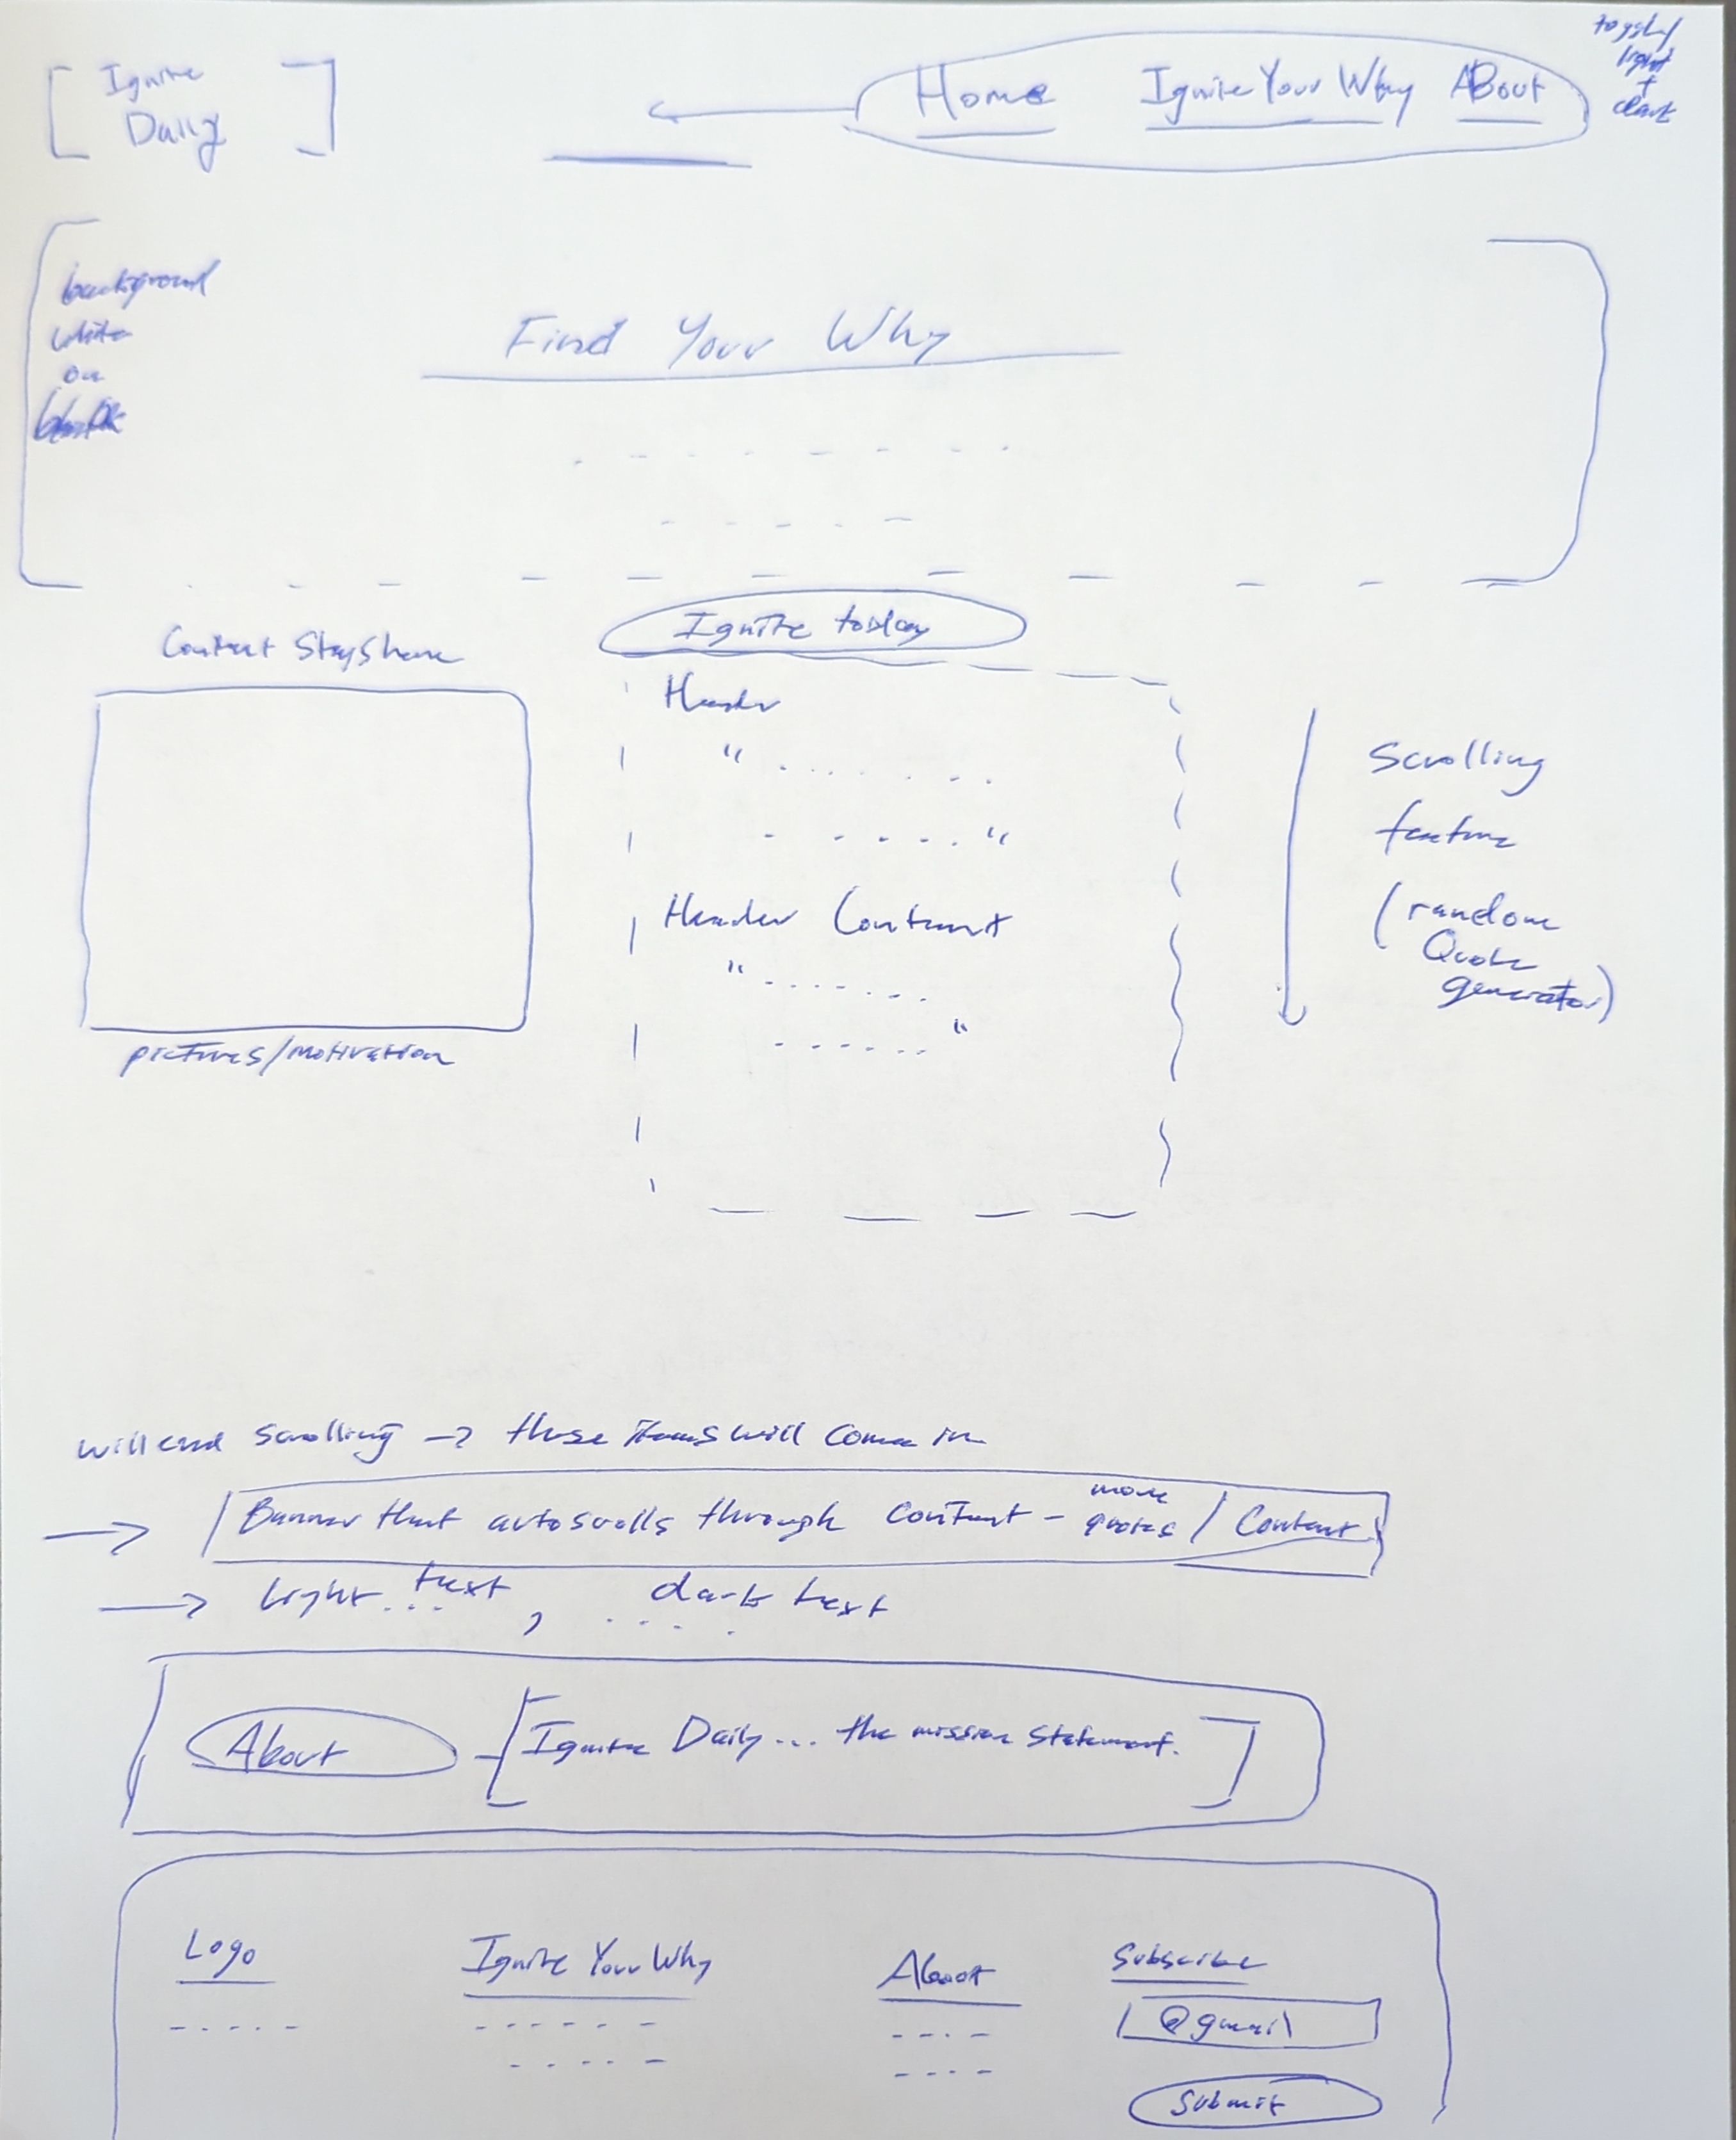 Ignite
Daily
Home Ignite Your Why About
toggle/
light
+
dark
background
white
on
Find Your Why
Ignite today
Content Stays here
Header
"
"
Header Content
"
"
pictures/motivation
Scrolling
feature
(random
Quote
generator)
will end scrolling → these items will come in
→ Banner that autoscrolls through content - more quotes / Content
→ light... text , .... dark text
About
Ignite Daily... the mission statement.
Logo
Ignite Your Why
About
Subscribe
@gmail
Submit